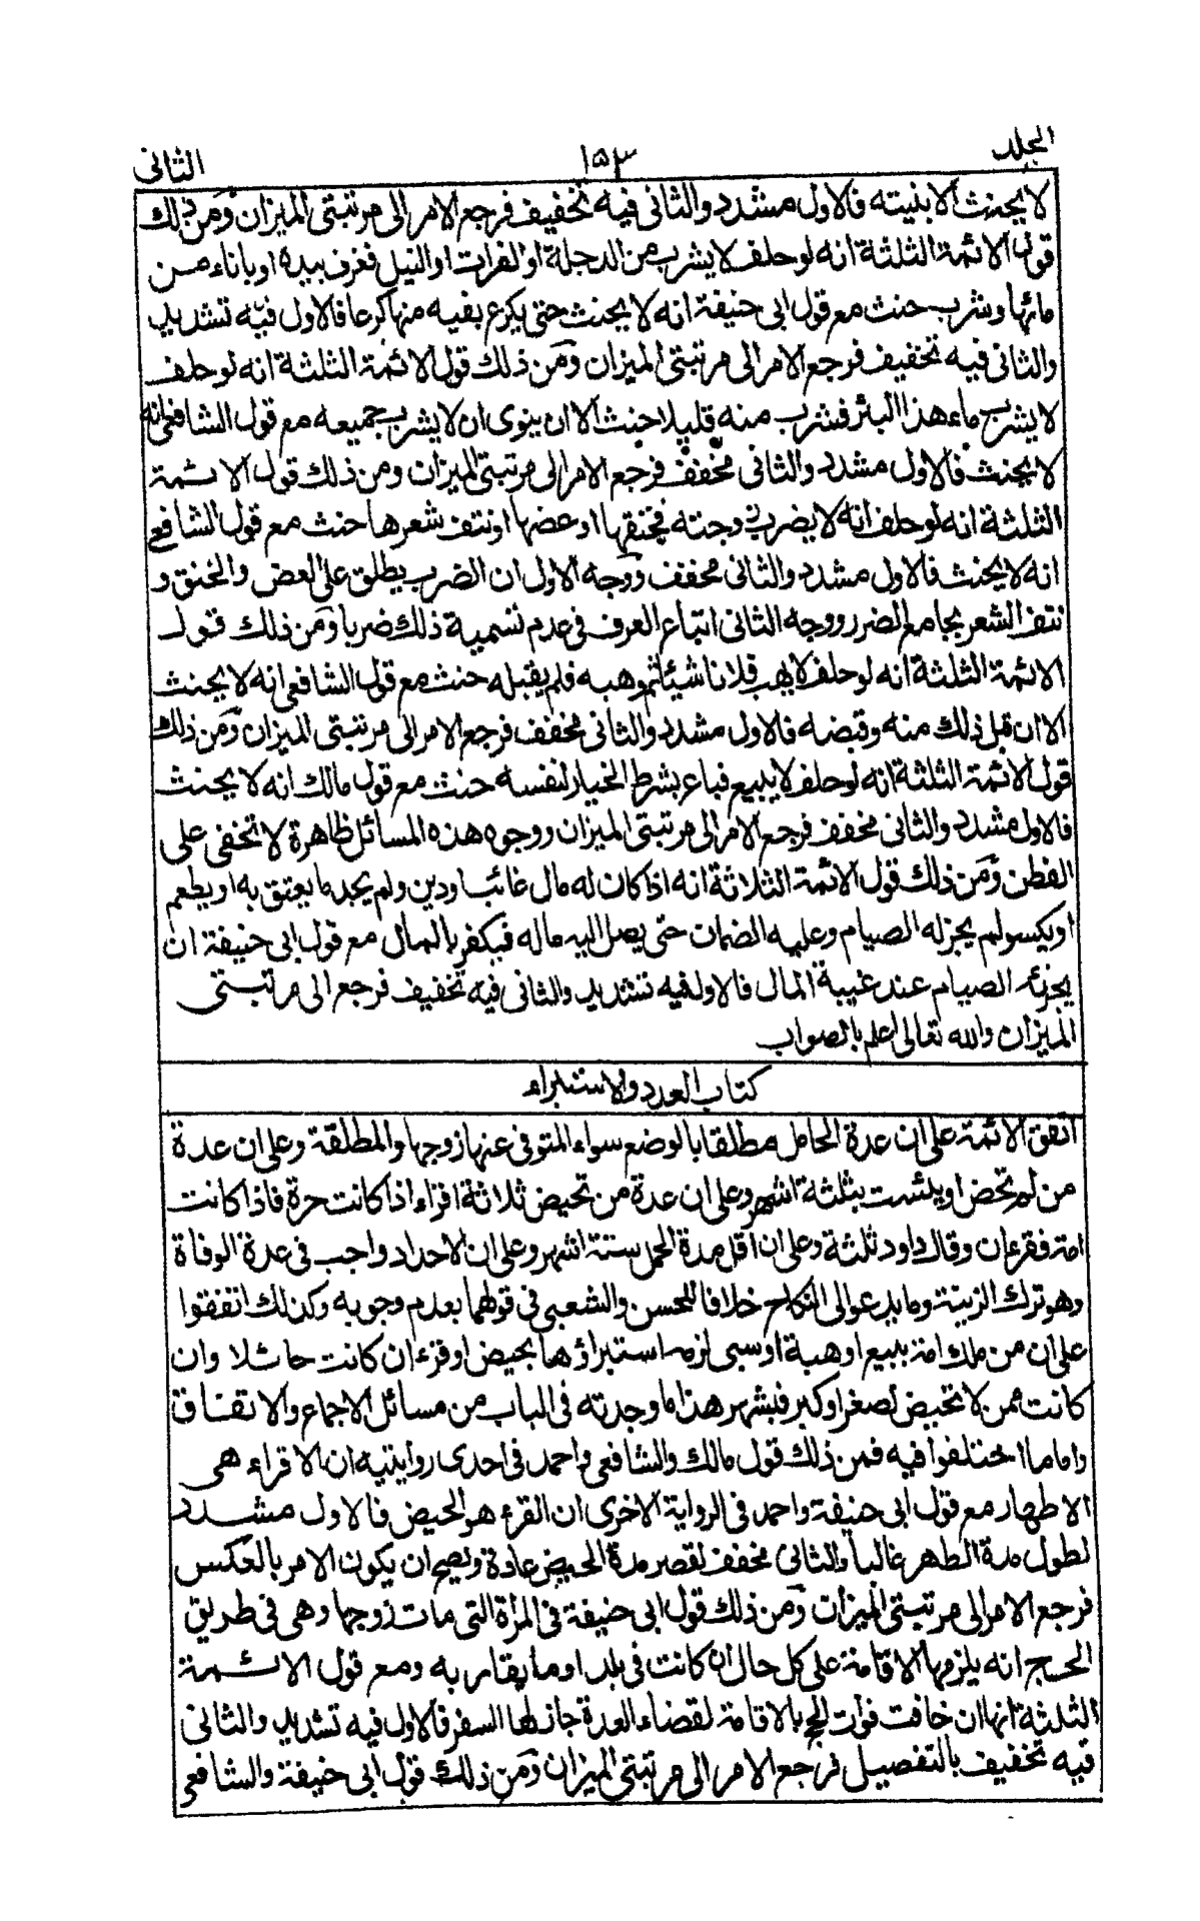 المجلد
١٥٣
الثانى
لا يحنث الا بنيته فالاول مشدد والثانى فيه تخفيف فرجع الامر الى مرتبتى الميزان ومن ذلك
قول الائمة الثلثة انه لو حلف لا يشرب من الدجلة او الفرات او النيل فغرف بيده او باناء من
مائها وشرب حنث مع قول ابى حنيفة انه لا يحنث حتى يكرع بفيه منها كرعا فالاول فيه تشديد
والثانى فيه تخفيف فرجع الامر الى مرتبتى الميزان ومن ذلك قول الائمة الثلثة انه لو حلف
لا يشرب ماء هذا البئر فشرب منه قليلا حنث الا ان ينوى ان لا يشرب جميعه مع قول الشافعى انه
لا يحنث فالاول مشدد والثانى مخفف فرجع الامر الى مرتبتى الميزان ومن ذلك قول الائمة
الثلثة انه لو حلف انه لا يضرب زوجته فخنقها او عضها او نتف شعرها حنث مع قول الشافعى
انه لا يحنث فالاول مشدد والثانى مخفف ووجه الاول ان الضرب يطلق على العض والخنق و
نتف الشعر بجامع الضرر ووجه الثانى اتباع العرف فى عدم تسمية ذلك ضربا ومن ذلك قول
الائمة الثلثة انه لو حلف لا يهب فلانا شيئا ثم وهبه فلم يقبله حنث مع قول الشافعى انه لا يحنث
الا ان قبل ذلك منه وقبضه فالاول مشدد والثانى مخفف فرجع الامر الى مرتبتى الميزان ومن ذلك
قول الائمة الثلثة انه لو حلف لا يبيع فباع بشرط الخيار لنفسه حنث مع قول مالك انه لا يحنث
فالاول مشدد والثانى مخفف فرجع الامر الى مرتبتى الميزان ووجوه هذه المسائل ظاهرة لا تخفى على
الفطن ومن ذلك قول الائمة الثلاثة انه اذا كان له مال غائب او دين ولم يجد ما يعتق به او يطعم
او يكسو لم يجز له الصيام وعليه الضمان حتى يصل اليه ماله فيكفر بالمال مع قول ابى حنيفة ان
يجزئه الصيام عند غيبة المال فالاول فيه تشديد والثانى فيه تخفيف فرجع الى مرتبتى
الميزان والله تعالى اعلم بالصواب
كتاب العدد والاستبراء
اتفق الائمة على ان عدة الحامل مطلقا بالوضع سواء المتوفى عنها زوجها والمطلقة وعلى ان عدة
من لم تحض او يئست بثلثة اشهر وعلى ان عدة من تحيض ثلاثة اقراء اذا كانت حرة فاذا كانت
امة فقرءان وقال داود ثلثة وعلى ان اقل مدة الحمل ستة اشهر وعلى ان الاحداد واجب فى عدة الوفاة
وهو ترك الزينة وما يدعو الى النكاح خلافا للحسن والشعبى فى قولهما بعدم وجوبه وكذلك اتفقوا
على ان من ملك امة ببيع او هبة او سبى لزمه استبراؤها بحيض او قرء ان كانت حائلا وان
كانت ممن لا تحيض لصغر او كبر فبشهر هذا ما وجدته فى الباب من مسائل الاجماع والاتفاق
واما ما اختلفوا فيه فمن ذلك قول مالك والشافعى واحمد فى احدى روايتيه ان الاقراء هى
الاطهار مع قول ابى حنيفة واحمد فى الرواية الاخرى ان القرء هو الحيض فالاول مشدد
لطول مدة الطهر غالبا والثانى مخفف لقصر مدة الحيض عادة ويصح ان يكون الامر بالعكس
فرجع الامر الى مرتبتى الميزان ومن ذلك قول ابى حنيفة فى المرأة التى مات زوجها وهى فى طريق
الحج انه يلزمها الاقامة على كل حال ان كانت فى بلد او ما يقاربه ومع قول الائمة
الثلثة انها ان خافت فوات الحج بالاقامة لقضاء العدة جاز لها السفر فالاول فيه تشديد والثانى
فيه تخفيف بالتفصيل فرجع الامر الى مرتبتى الميزان ومن ذلك قول ابى حنيفة والشافعى